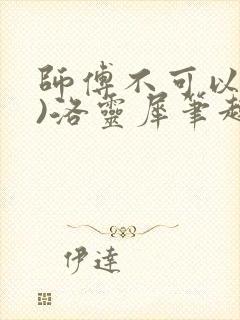 師傅不可以
)洛靈犀筆趣
伊達